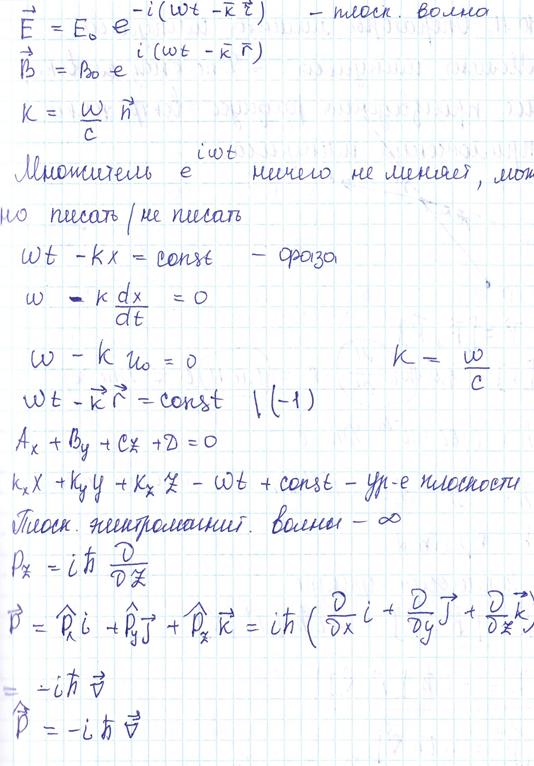 E⃗ = E₀ e^{-i(ωt - k̄ r̄)} - плоск. волна
B⃗ = B₀ e^{i(ωt - k̄ r̄)}
K = ω/c n⃗
Множитель e^{iωt} ничего не меняет, мож
но писать / не писать
ωt - kx = const - фаза
ω - k dx/dt = 0
ω - k u₀ = 0 K = ω/c
ωt - k⃗ r⃗ = const \ (-1)
Ax + By + Cz + D = 0
kₓX + Kᵧy + K_z Z - ωt + const - ур-е плоскости
Плоск. электромагнит. волны - ∞
P_z = iħ ∂/∂z
P⃗ = P̂ₓ i + P̂ᵧ j⃗ + P̂_z k⃗ = iħ ( ∂/∂x i + ∂/∂y j⃗ + ∂/∂z k⃗ )
= -iħ ∇⃗
P̂⃗ = -iħ ∇⃗